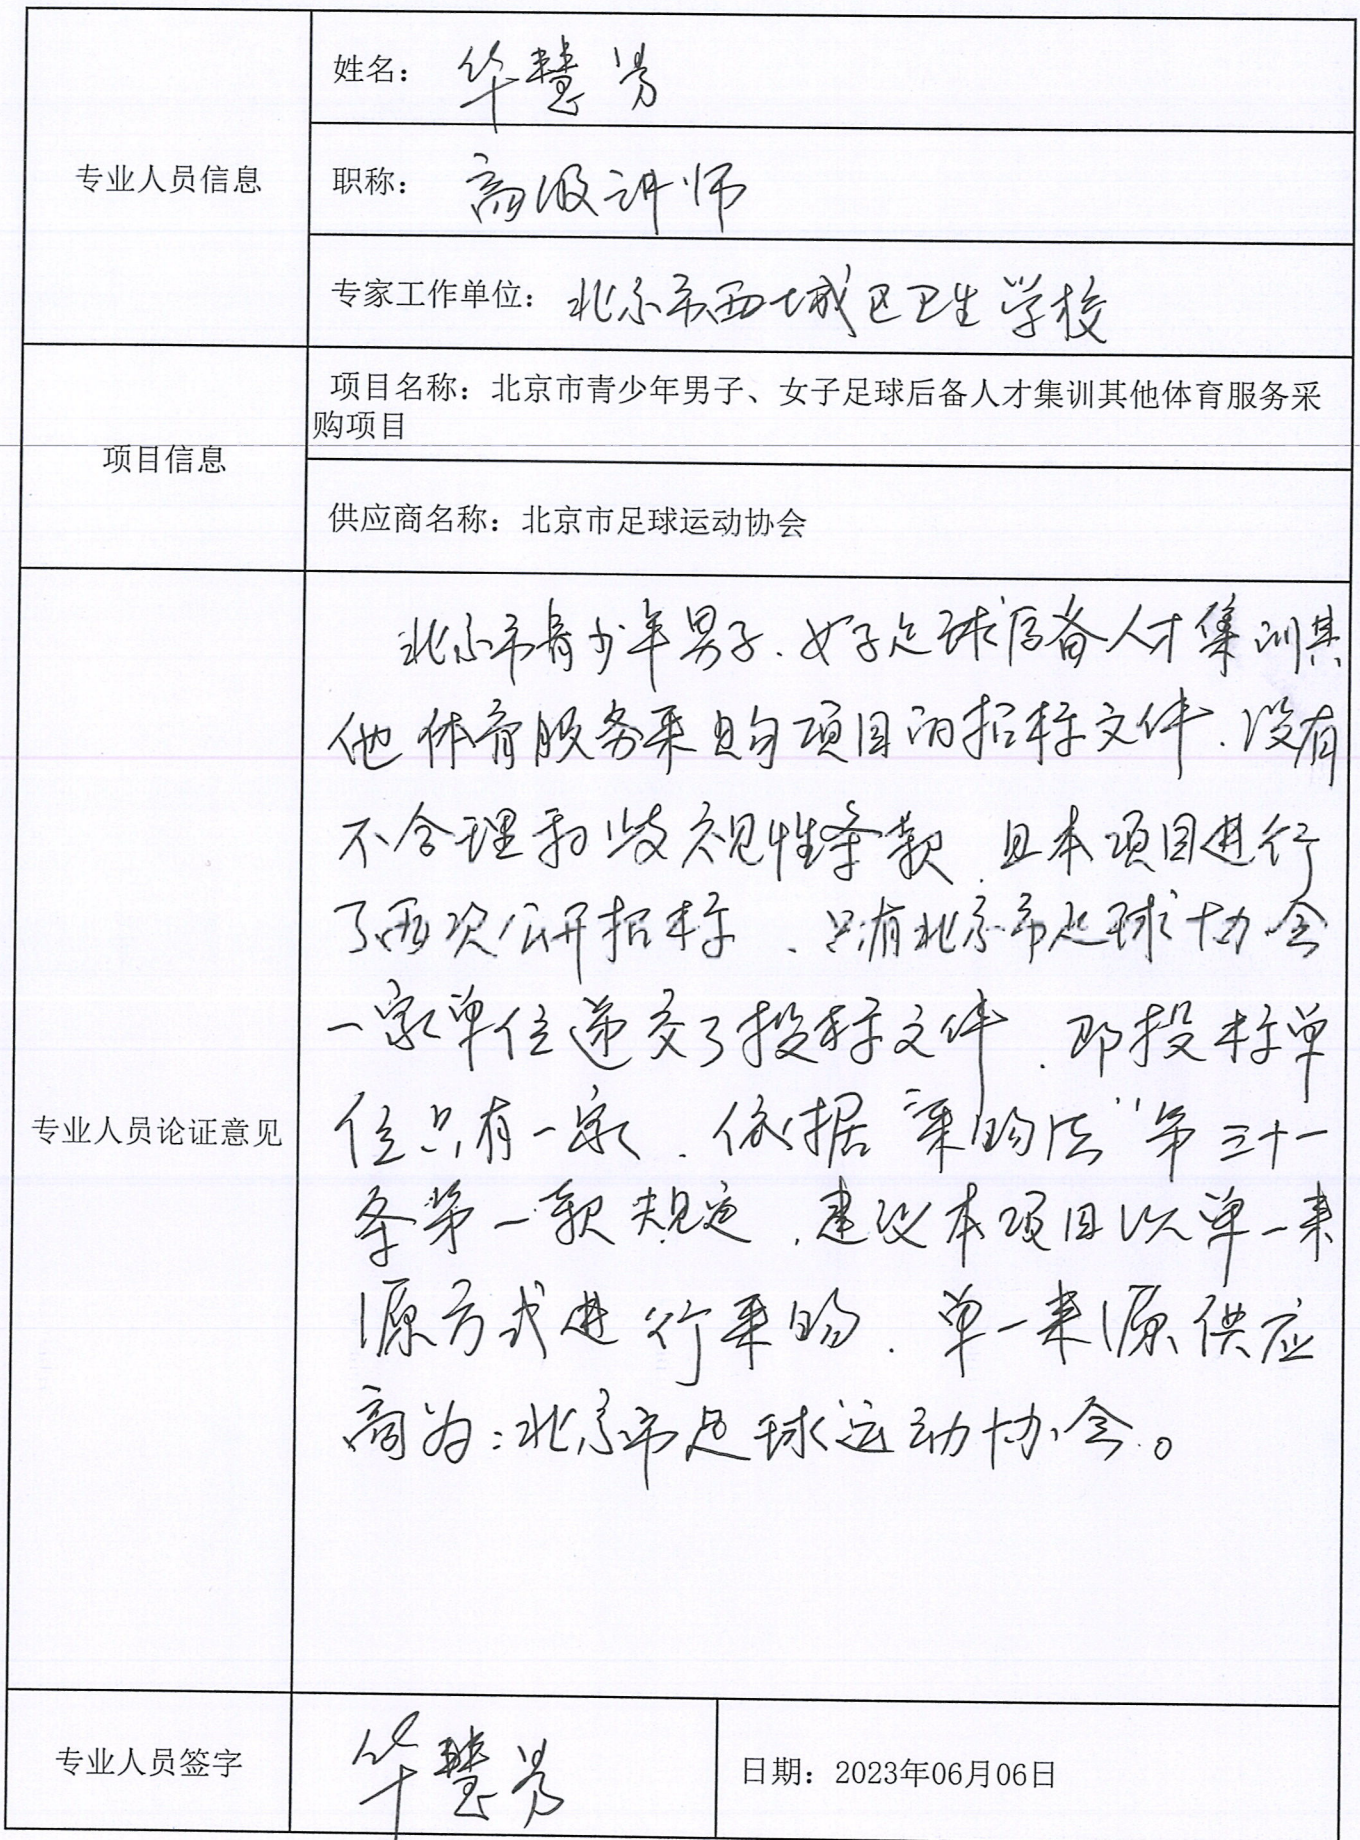 专业人员信息
姓名： 华慧芳
职称： 高级讲师
专家工作单位： 北京市西城区卫生学校
项目信息
项目名称：北京市青少年男子、女子足球后备人才集训其他体育服务采
购项目
供应商名称：北京市足球运动协会
专业人员论证意见
北京市青少年男子、女子足球后备人才集训其
他体育服务采购项目的招标文件、没有
不合理和歧视性条款、且本项目进行
了两次公开招标、只有北京市足球协会
一家单位递交了投标文件、即投标单
位只有一家、依据“采购法”第三十一
条第一款规定、建议本项目以单一来
源方式进行采购、单一来源供应
商为：北京市足球运动协会。
专业人员签字
华慧芳
日期：2023年06月06日